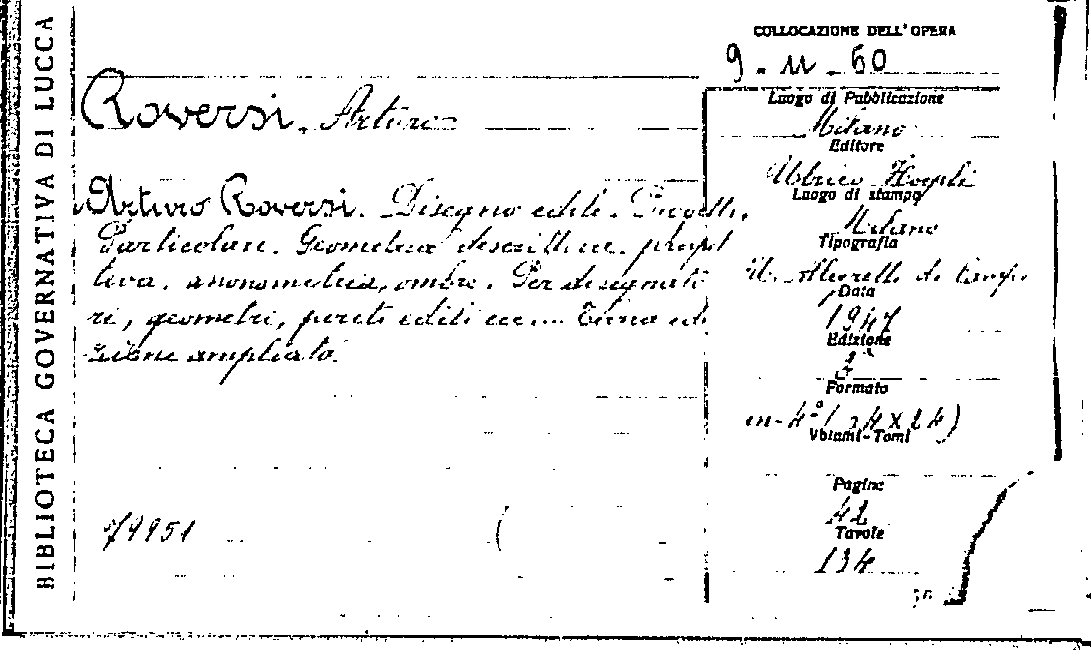 BIBLIOTECA GOVERNATIVA DI LUCCA
COLLOCAZIONE DELL'OPERA
9 - 11 - 60
Roversi, Arturo
Arturo Roversi. Disegno edile. Progetti,
Particolari. Geometria descrittiva.
tiva, axonometria, ombre. Per disegnato
ri, geometri, periti edili ecc... Terza edi
zione ampliata.
Luogo di Pubblicazione
Milano
Editore
Ulrico Hoepli
Luogo di stampa
Milano
Tipografia
Data
1947
Edizione
3ª
Formato
in-4° (34 x 24)
Volumi-Tomi
Pagine
42
Tavole
134